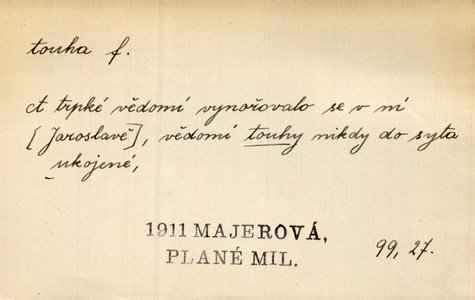 touha f.
A trpké vědomí vynořovalo se v ní
[Jaroslavě], vědomí touhy nikdy do syta
ukojené,
1911 MAJEROVÁ,
PLANÉ MIL.
99, 27.